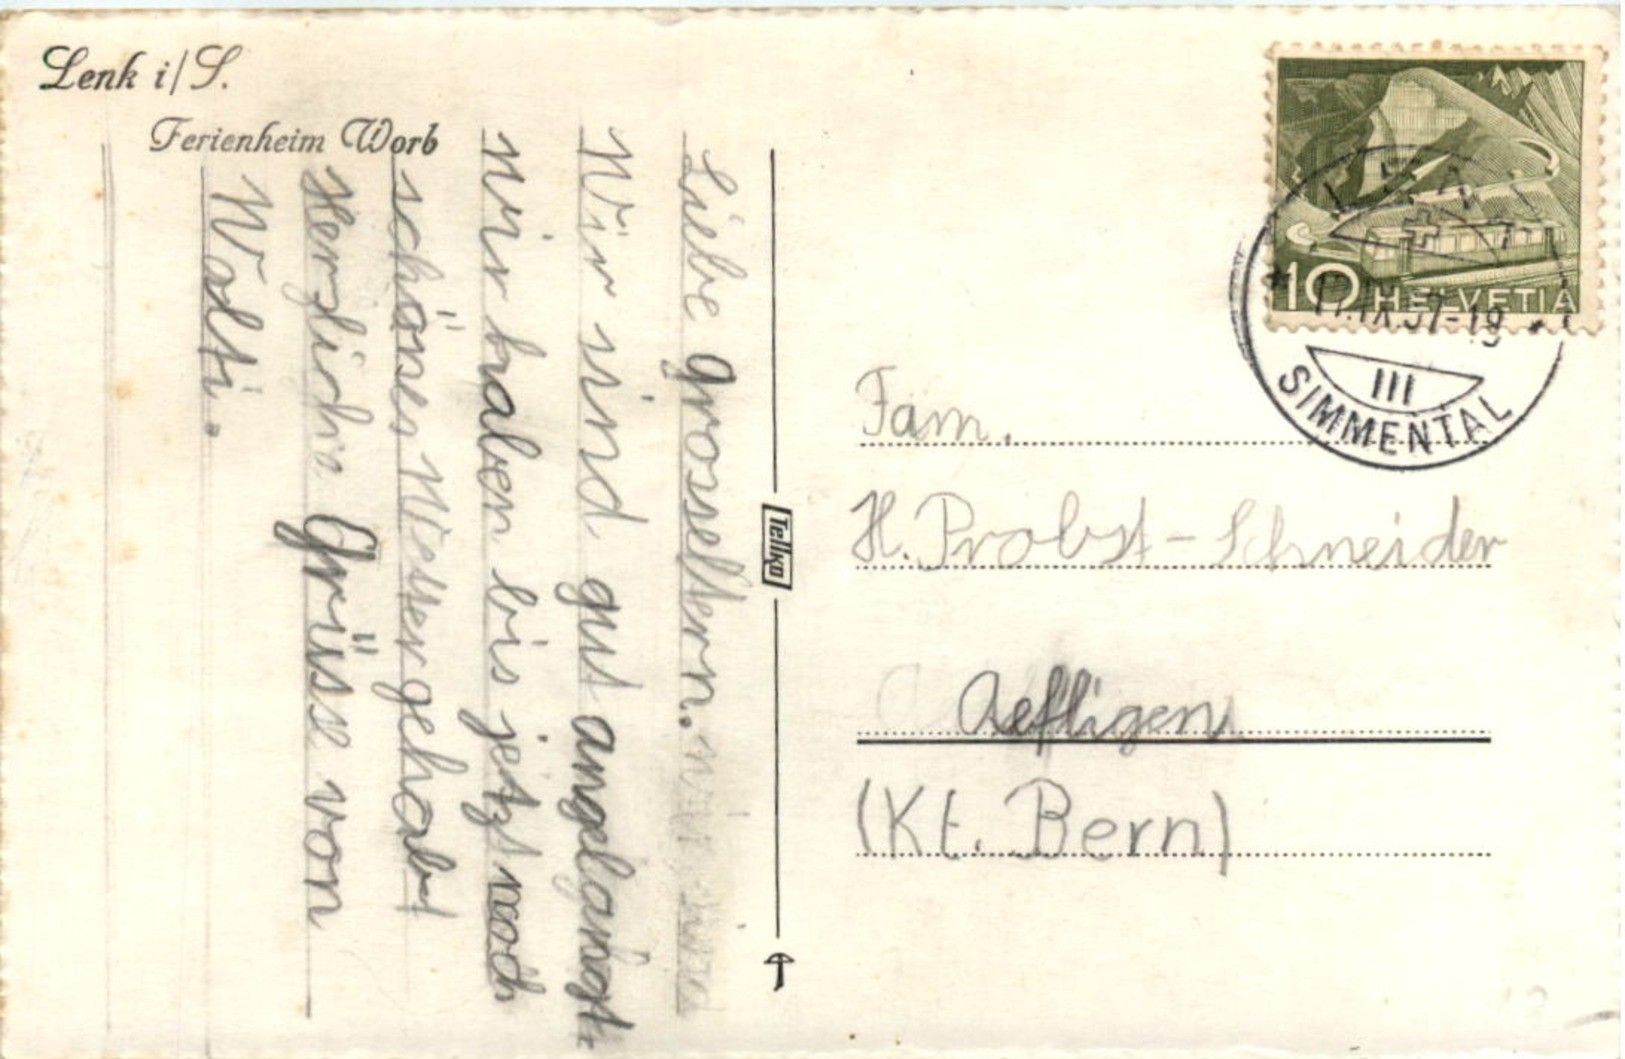 Lenk i/S.
Ferienheim Worb
Liebe Grosseltern.
Wir sind gut angelangt.
Wir haben bis jetzt noch
schönes Wetter gehabt
Herzliche Grüsse von
Walti.
Tellko
Fam.
H. Probst-Schneider
Aefligen
(Kt. Bern)
10 HELVETIA
LENK
III
SIMMENTAL